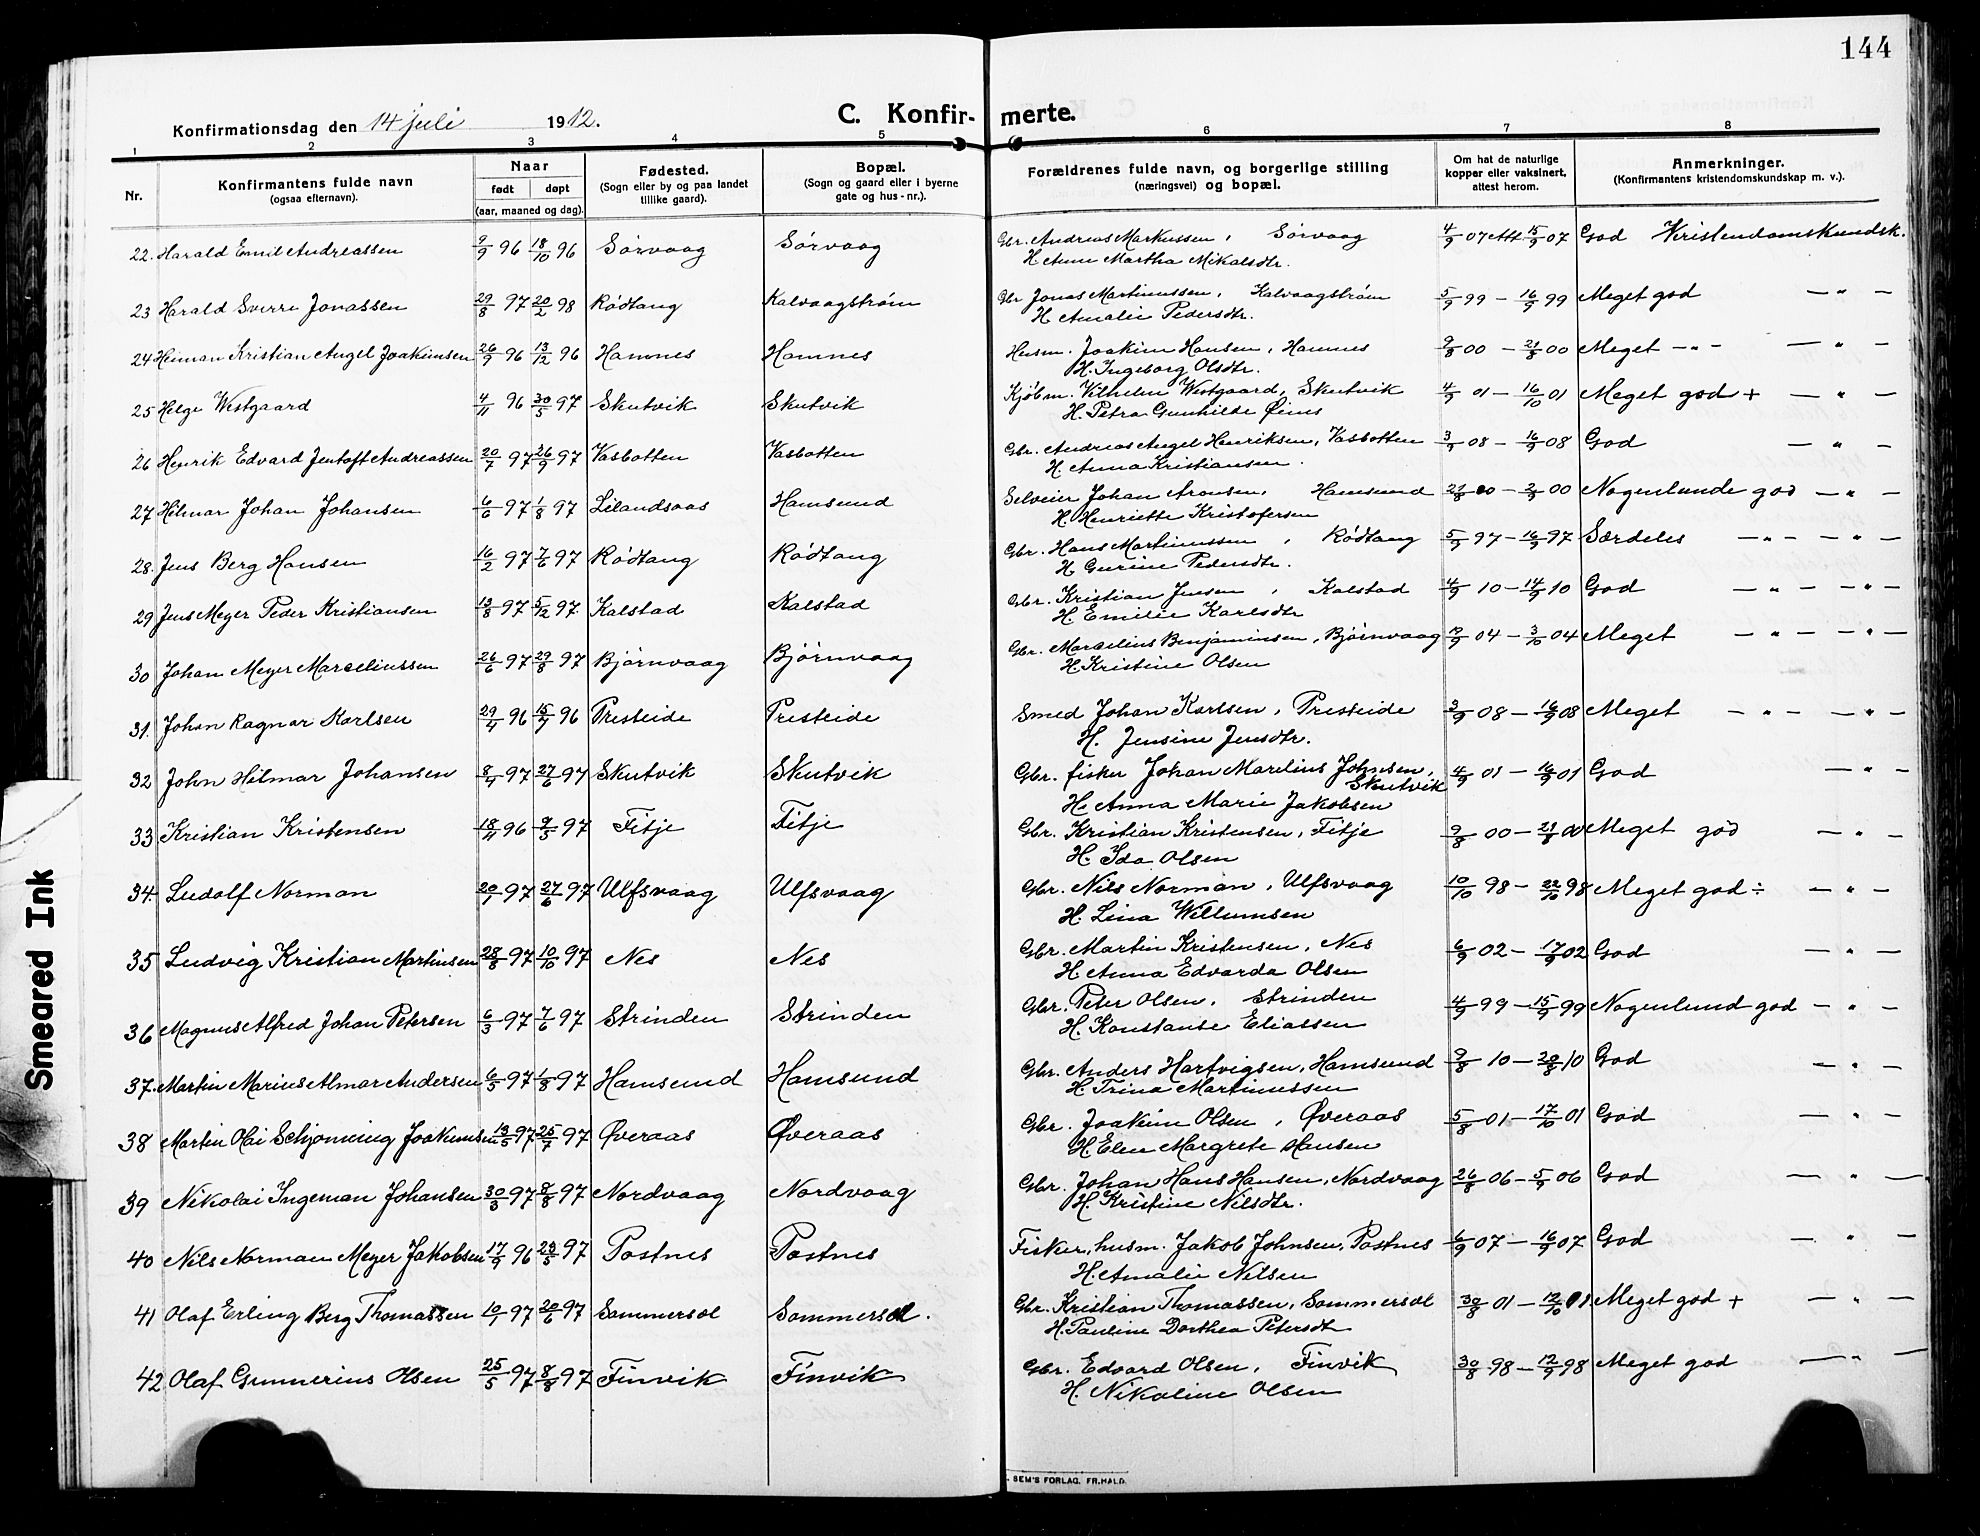 144
Konfirmationsdag den 14 juli 1912.
C. Konfir-merte.
1 2 3 4 5 6 7 8
Nr.
Konfirmantens fulde navn
(ogsaa efternavn).
Naar
født døpt
(aar, maaned og dag).
Fødested.
(Sogn eller by og paa landet
tillike gaard).
Bopæl.
(Sogn og gaard eller i byerne
gate og hus-nr.).
Forældrenes fulde navn, og borgerlige stilling
(næringsvei) og bopæl.
Om hat de naturlige
kopper eller vaksinert,
attest herom.
Anmerkninger.
(Konfirmantens kristendomskundskap m. v.).
22. Harald Emil Andreassen 9/9 96 18/10 96 Sörvaag Sörvaag Gbr. Andreas Markussen, Sörvaag 4/9 07 Att. 15/9 07 God Kristendomskundsk.
H. Anne Martha Mikalsdtr.
23 Harald Sverre Jonassen 29/8 97 20/2 98 Rödtang Kalvaagström Gbr Jonas Martinussen, Kalvaagström 5/9 99 — 16/9 99 Meget god — " —
H. Amalie Pedersdtr.
24 Heiman Kristian Angel Joakimsen 26/9 96 13/12 96 Hamnes Hamnes Husm. Joakim Hansen, Hamnes 9/8 00 — 21/8 00 Meget — " — — " —
H. Ingeborg Olsdtr.
25 Helge Westgaard 4/11 96 30/5 97 Skutvik Skutvik Kjöbm. Vilhelm Westgaard, Skutvik 4/9 01 — 16/10 01 Meget god + — " —
H. Petra Gunhilde Øines
26 Henrik Edvard Jentoft Andreassen 20/7 97 26/9 97 Vasbotten Vasbotten Gbr. Andreas Angel Henriksen, Vasbotten 3/9 08 — 16/9 08 God — " —
H. Anna Kristiansen.
27 Hilmar Johan Johansen 6/6 97 1/8 97 Lilandsaas Hamsund Selveier Johan Aronsen, Hamsund 21/8 00 — 2/9 00 Nogenlunde god — " —
H. Henriette Kristofersen
28. Jens Berg Hansen 16/2 97 7/6 97 Rödtang Rödtang Gbr. Hans Martinussen, Rödtang 5/9 97 — 16/9 97 Særdeles — " — — " —
H. Gurine Pedersdtr.
29 Jens Meyer Peder Kristiansen 13/8 97 5/12 97. Kalstad Kalstad Gbr. Kristian Jensen, Kalstad 4/9 10 — 14/9 10 God — " — — " —
H. Emilie Karlsdtr
30 Johan Meyer Marseliussen 26/6 97 29/8 97 Björnvaag Björnvaag Gbr. Marselius Benjaminsen, Björnvaag 04 — 3/10 04 Meget — " — — " —
H. Kristine Olsen
31. Johan Ragnar Karlsen 29/4 96 15/7 96 Presteide Presteide Smed Johan Karlsen, Presteide 3/9 08 — 16/9 08 Meget — " — — " —
H. Jensine Jensdtr.
32 John Hilmar Johansen 8/4 97 27/6 97 Skutvik Skutvik Gbr. fisker Johan Marelius Johnsen, Skutvik 4/9 01 — 16/9 01 God — " —
H. Anna Marie Jakobsen
33 Kristian Kristensen 18/11 96 9/5 97 Fitje Fitje Gbr. Kristian Kristensen, Fitje 9/8 00 — 21/8 00 Meget god — " —
H. Ida Olsen
34. Ludolf Norman 20/1 97 27/6 97 Ulfsvaag Ulfsvaag Gbr. Nils Norman, Ulfsvaag 10/10 98 — 22/10 98 Meget god ÷ — " —
H. Lina Willumsen
35 Ludvig Kristian Martinsen 28/8 97 10/10 97 Nes Nes Gbr. Martin Kristensen, Nes 6/9 02 — 17/9 02 God — " —
H. Anna Edvarda Olsen
36 Magnus Alfred Johan Petersen 6/3 97 7/6 97 Strinden Strinden Gbr. Peter Olsen, Strinden 4/9 99 — 15/9 99 Nogenlund god — " —
H. Konstanse Eliassen
37. Martin Marius Almar Andersen 6/5 97 1/8 97 Hamsund Hamsund Gbr. Anders Hartvigsen, Hamsund 9/8 10 — 20/8 10 God — " —
H. Trina Martinussen
38 Martin Olai Schjonning Joakimsen 13/5 97 25/7 97 Øveraas Øveraas Gbr. Joakim Olsen, Øveraas 5/8 01 — 17/10 01 God — " —
H. Elen Margrete Hansen
39 Nikolai Ingeman Johansen 30/3 97 8/8 97 Nordvaag Nordvaag Gbr. Johan Hans Hansen, Nordvaag 26/8 06 — 5/9 06 God — " —
H. Kristine Nilsdtr.
40 Nils Norman Meyer Jakobsen 17/9 96 23/5 97 Postnes Postnes Fisker, husm. Jakob Johnsen, Postnes 6/9 07 — 16/9 07 God — " —
H. Amalie Nilsen
41 Olaf Erling Berg Thomassen 10/1 97 20/6 97 Sommersel Sommersel. Gbr. Kristian Thomassen, Sommersel 30/8 01 — 12/10 01 Meget god + — " —
H. Pauline Dorthea Petersdt
42 Olaf Gunnerius Olsen 25/5 97 8/8 97 Finvik Finvik Gbr. Edvard Olsen, Finvik 30/8 98 — 12/9 98 Meget god — " —
H. Nikoline Olsen
SEM'S FORLAG, FR.HALD.
Smeared Ink